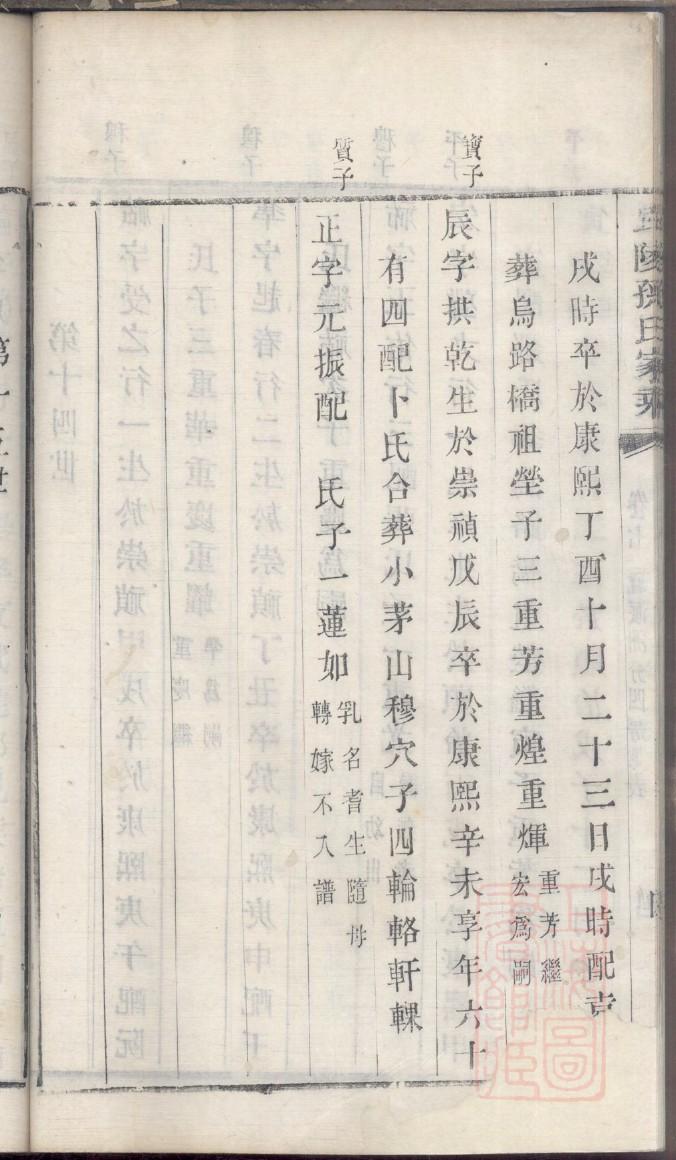 陵孫氏家乘
戌時卒於康熙丁酉十月二十三日戌時配
葬烏路橋祖塋子三重芳重煌重煇重芳繼宏爲嗣
寶子
辰字拱乾生於崇禎戊辰卒於康熙辛未享年六十
有四配卜氏合葬小茅山穆穴子四輪輅軒輠
質子
正字元振配 氏子一蓮如乳名耆生隨母轉嫁不入譜